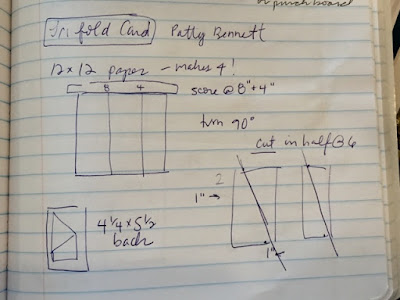 or punch board
Tri fold Card Patty Bennett
12x12 paper - makes 4!
8 4 score @ 8" + 4"
turn 90°
cut in half @ 6
2
1" →
4 1/4 x 5 1/2
back
1" ←